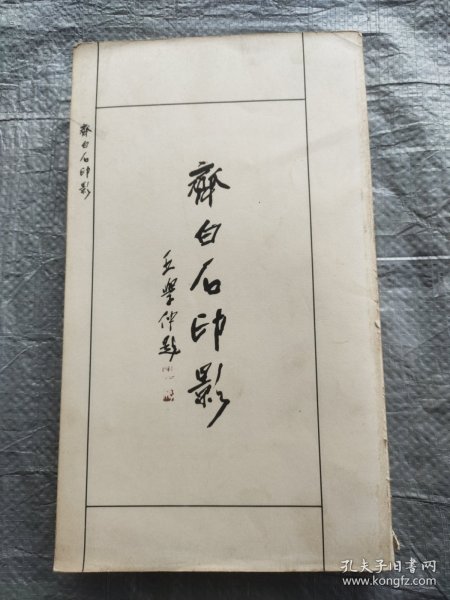 齊白石印影
齊白石印影
王學仲題
孔夫子旧书网
www.kongfz.com